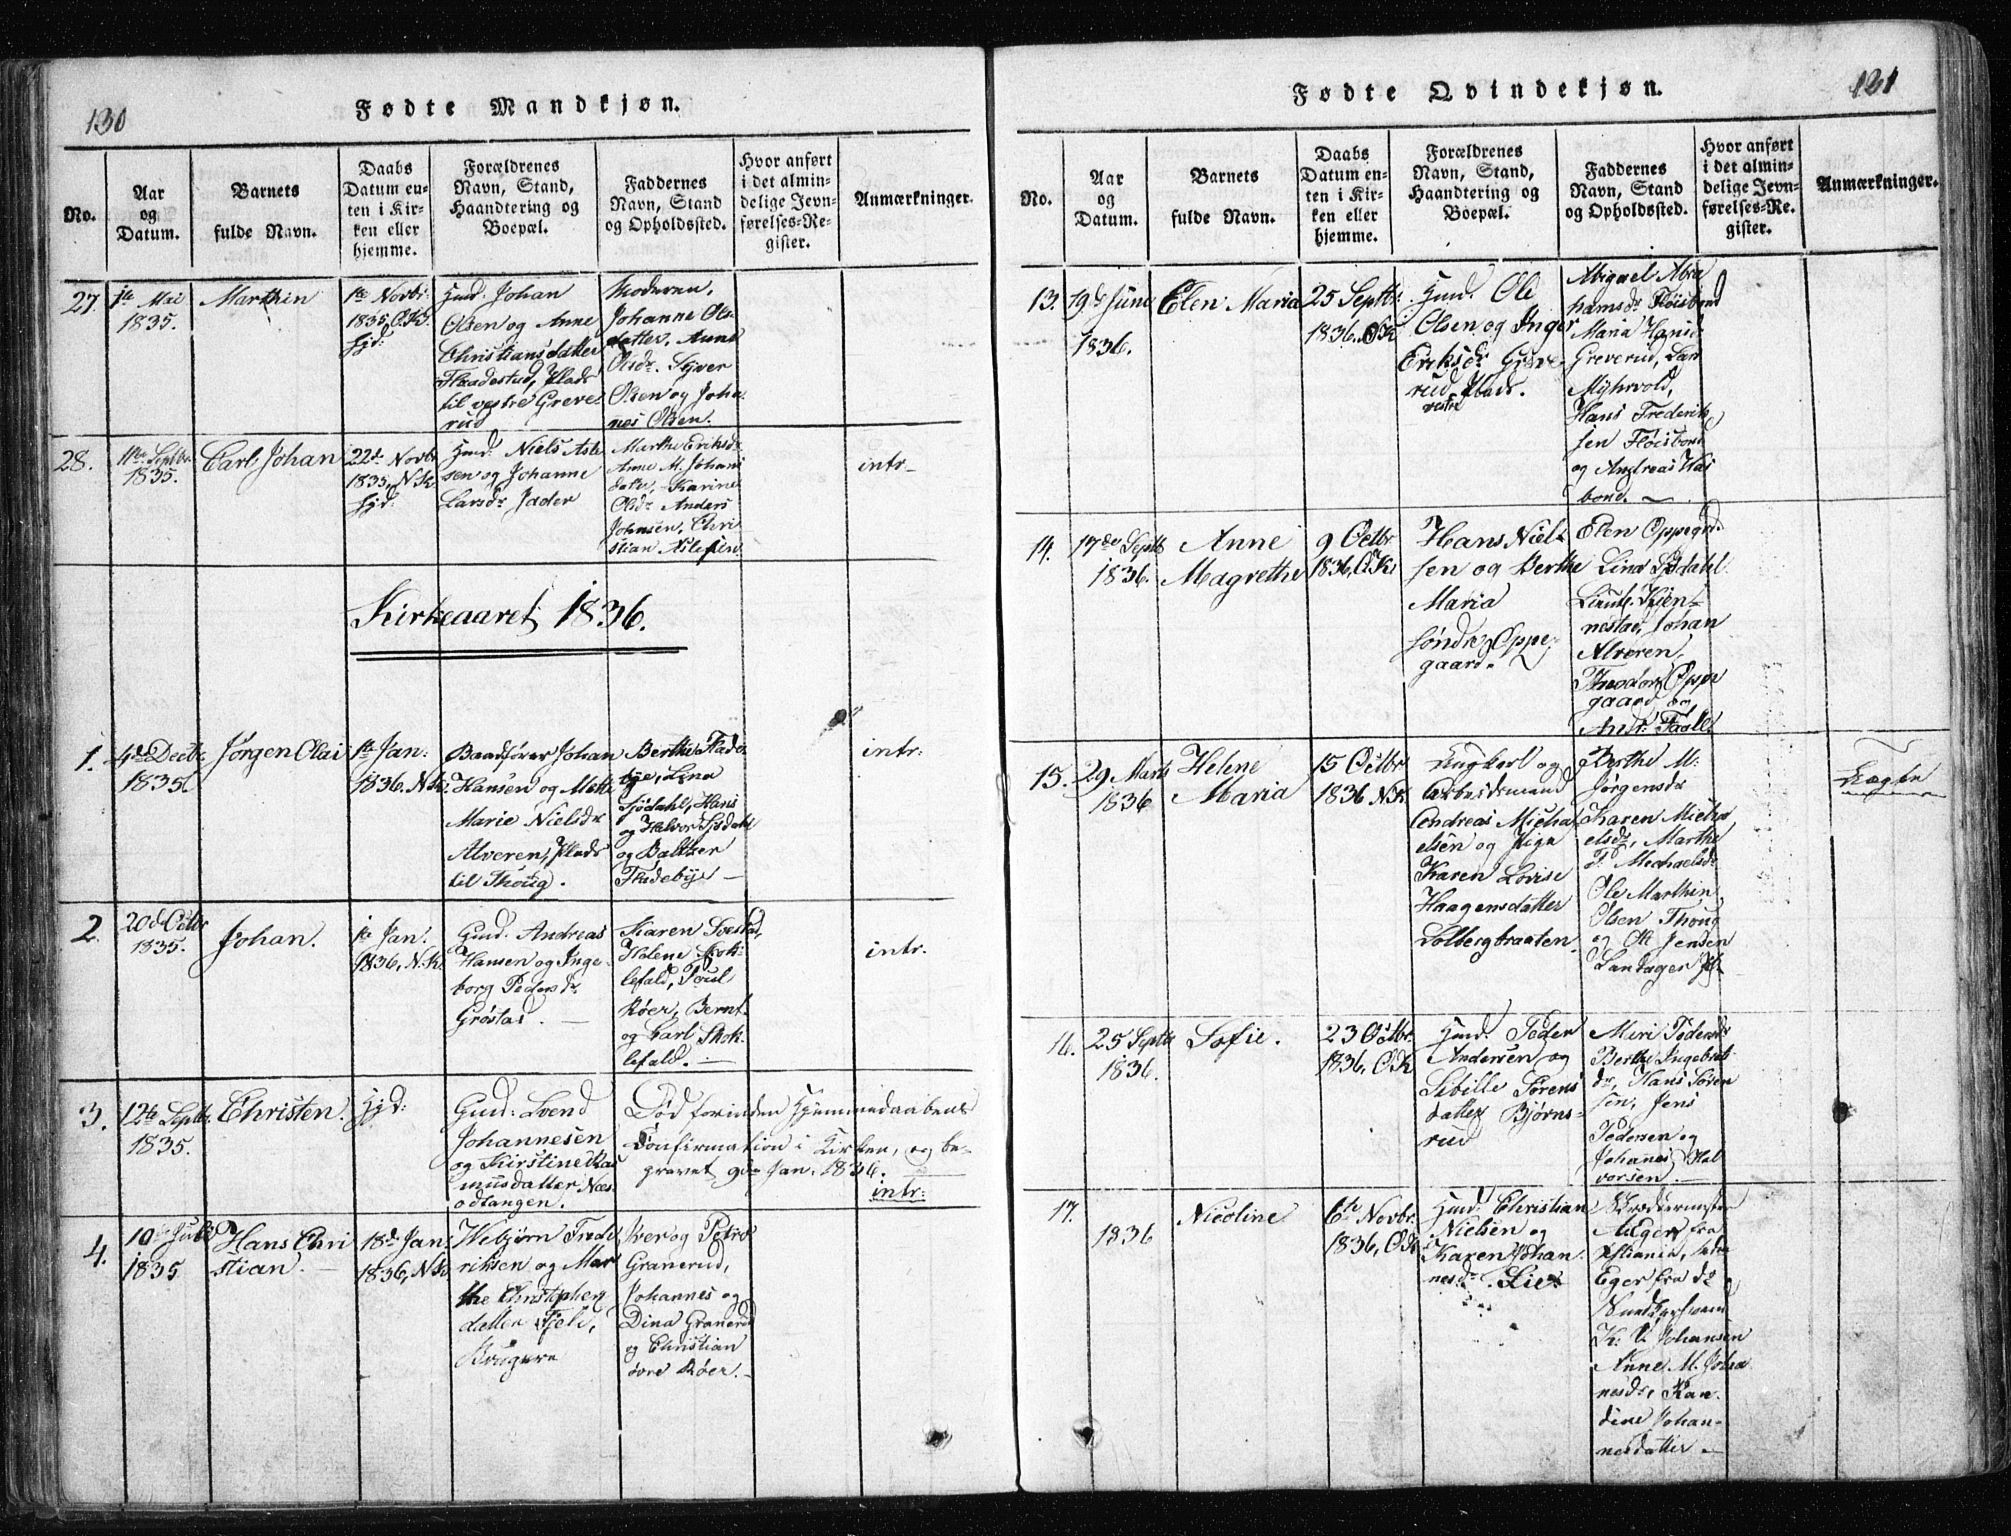 130
Fødte Mandkjøn.
No.
Aar
og
Datum.
Barnets
fulde Navn.
Daabs
Datum en-
ten i Kir-
ken eller
hjemme.
Forældrenes
Navn, Stand,
Haandtering og
Boepæl.
Faddernes
Navn, Stand
og Opholdssted.
Hvor anført
i det almin-
delige Jevn-
førelses-Re-
gister.
Anmærkninger.
27.
1te Mai
1835.
Marthin
1te Novbr:
1835. O.K.
Hjd:
Gmd: Johan
Olsen og Anne
Christiansdatter
Fladestad, Plads
til vestre Greve-
rud
Moderen,
Johanne Ols-
datter, Anne
Olsdr. Syver
Olsen og Joha-
nes Olsen.
28.
11te Septbr.
1835.
Carl Johan
22de Novbr
1835, N.K.
Hjd:
Gmd: Niels Asle-
sen og Johanne
Larsdr Jader
Marthe Eriksdr
Anne M. Johans
datter, Karine
Olsdr Anders
Johnsen, Chri
stian Aslesen
intr-
Kirkeaaret 1836.
1.
4de Decbr
1835.
Jörgen Olai
1te Jan:
1836, N.K.
Baadförer Johan
Hansen og Mette
Marie Nielsdr
Alveren, Plads
til Thoug.
Berthe Flade-
bye, Lina
Sjödahl, Hans
og Halvor Sjödahl
og Baltzer
Fladebye -
intr:
2.
20de Octbr
1835.
Johan.
1te Jan.
1836, N.K.
Gmd. Andreas
Hansen og Inge-
borg Pedersdr.
Gröstad. -
Karen Toestad,
Helene Skok-
lefald, Poul
Röer, Bernt
og Carl Skok-
lefald. -
intr.
3.
12te Septbr.
1835.
Christen.
Hjd:
Gmd: Svend
Johannesen
og Kirstine Ras
musdatter Næs-
odtangen.
Död forinden Hjemmedaabens
Confirmation i Kirken, og be-
gravet 9de Jan. 1836.
intr:
4.
10de Julii
1835
Hans Chri
stian. -
18de Jan:
1836, N.K.
Webjörn Frede
riksen og Mar
the Christophers
datter Fjeld,
Brugere
Iver og Petro
Granerud,
Johannes og
Dina Granerud
og Christian
övre Röer. -
131
Fødte Qvindekjøn.
No.
Aar
og
Datum.
Barnets
fulde Navn.
Daabs
Datum en-
ten i Kir-
ken eller
hjemme.
Forældrenes
Navn, Stand,
Haandtering og
Boepæl.
Faddernes
Navn, Stand
og Opholdssted.
Hvor anført
i det almin-
delige Jevn-
førelses-Re-
gister.
Anmærkninger.
13.
19de Juni
1836.
Elen Maria
25 Septbr:
1836. O.K.
Gmd. Ole
Olsen og Inger
Eriksdr Greve-
rud Plads.
vestre
Abigael Abra
hamsdr Flöisbond
Maria Hansdr
Greverud, Lars
Myhrvold,
Hans Frederik
sen Flöisbond
og Andreas Has
bond. -
14.
17de Septbr
1836.
Anne
Magrethe
9 Octbr
1836, O.K.
Hans Niel-
sen og Berthe
Maria
söndre Oppe-
gaard.
Elen Oppegrd.
Lina Sjödahl
Lieut. Kjen-
nestad, Johan
Alveren,
Theodor Oppe
gaard og
15.
29 Marts
1836
Helene
Maria
15 Octbr
1836 N.K.
Ungkarl og
Arbeidsmand
Andreas Micha
elsen og Pige
Karen Lovise
Haagensdatter
Solbergbraaten
Berthe M:
Jörgensdr
Karen Micha
elsdr, Marthe
P. Michaelsdr
Ole Marthin
Olsen Thoug
og M Jensen
Landager
Uægte
16.
25 Septbr
1836.
Sofie.
23 Octbr.
1836, O.K.
Gmd. Peder
Andersen og
Sibille Sörens
datter Björns-
rud
Mari Pedersdr
Berthe Ingebrets
dr, Hans Sören
sen, Jens
Pedersen og
Johanes Hal
vorsen. -
17.
1836
Nicoline
6te Novbr.
1836, O.K.
Gmd: Christian
Nielsen og
Karen Johan
nesdr. Lie.
Eger fra do
K. V. Johansen
Anne M. Joha
nesdr, Kan-
dine Johan-
nesdatter -